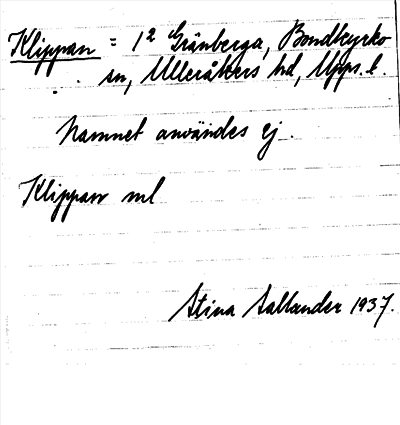 Klippan = 1² Gränberga, Bondkyrko
sn, Ulleråkers hd, Upps. l.
Namnet användes ej.
Klippan ml
Stina Sallander 1937.